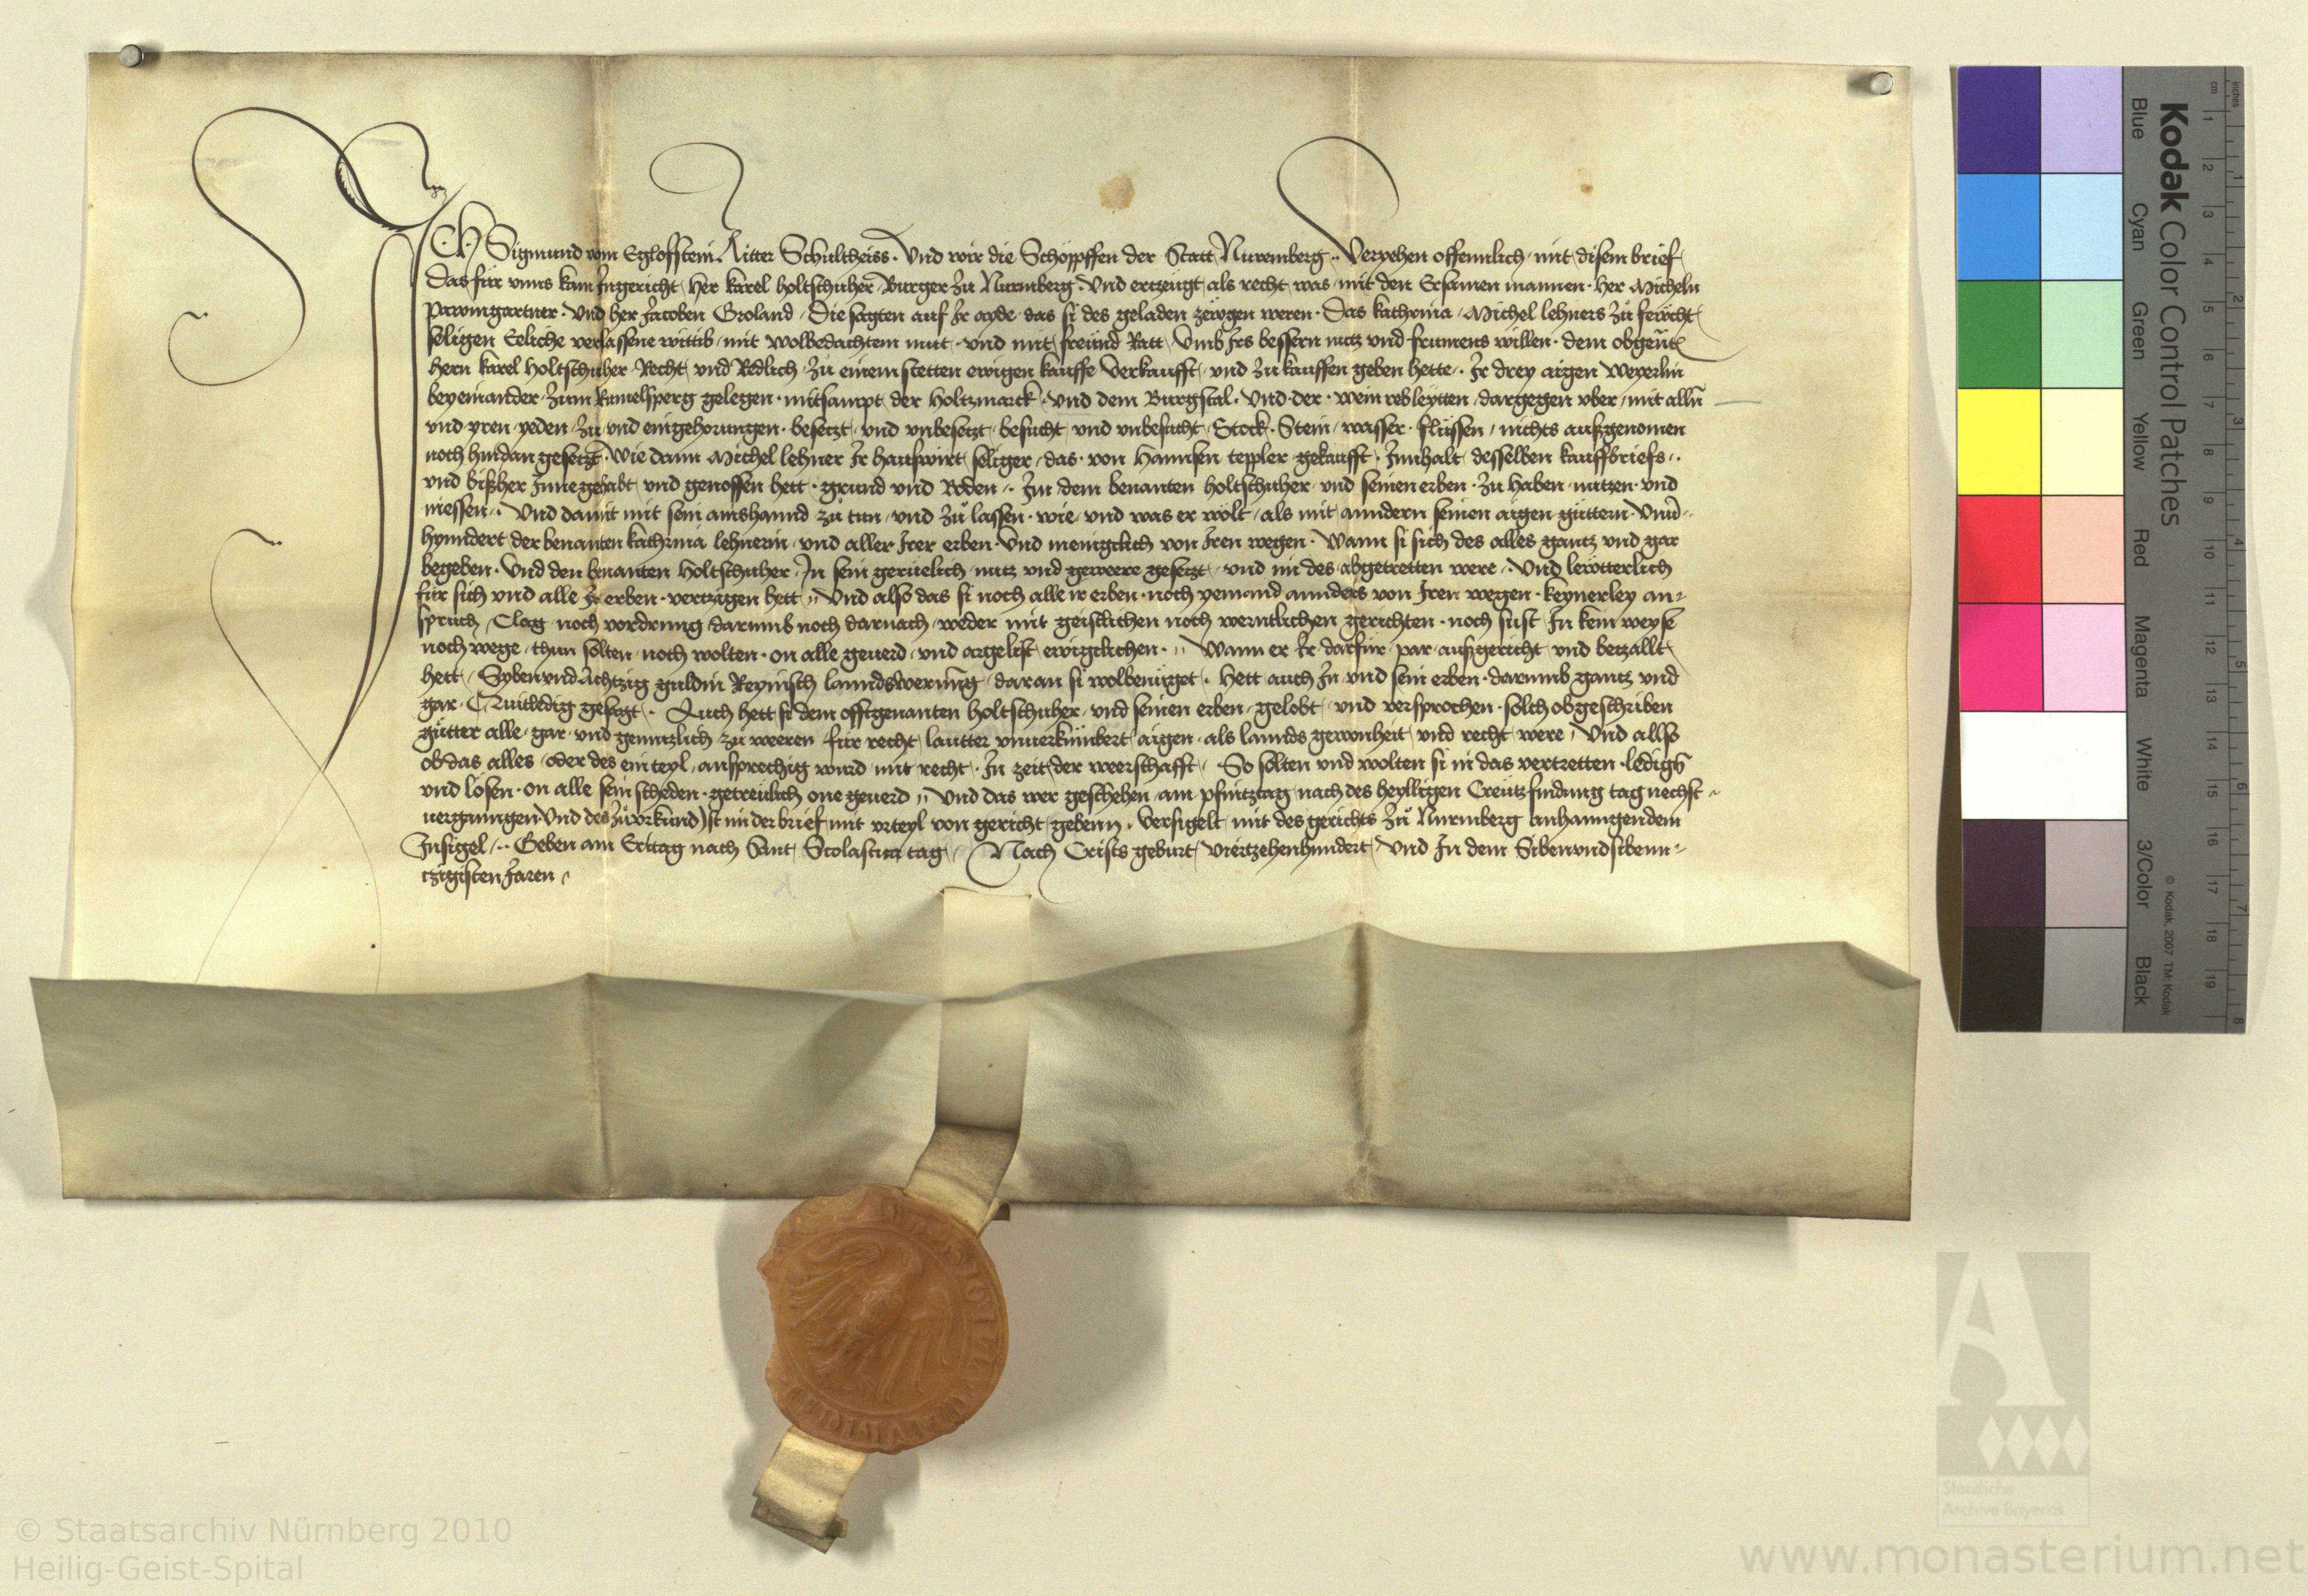 ICh Sigmund vom Egloffstein Ritter Schultheiss · Und wir die Schöpffen der Statt Nuremberg ·· Veryehen offennlich mit disem brief
Das für vnns kam Jngericht Her karel holtschuher Burger Zu Nurmberg · Und ertzeugt als recht was mit den Ersamen mannen · Her Micheln
Pawmgartner · Und her Jacoben Groland / Die sagten auf Jr ayde das si des geladen zewgen weren · Das kathrina Michel lehners zu
seligen Eeliche verlassene wittib mit wolbedachtem mut · vnd mit freund Ratt Vmb Jrs bessern nutz vnd frumens willen · dem obgen̄t̄
hern karel holtschuher Recht vnd Redlich Zu einem stetten ewigen kauffe Verkaufft vnd zu kauffen geben hette ·· Jr drey aigen Weyerlin
beyeinander Zum gelegen · mitsampt der Holtzmarck · vnd dem Burgstal · Und der wein rebleytten dargegen vber mit alln̄
vnd yren yeden Zu vnd eingehorungen · besetzt vnd vnbesetzt besucht vnd vnbesucht Stock · Stein wasser · flüssen nichts außgenomen
noch hindan gesetzt · Wie dann Michel lehner Jr hauswirt seliger das von Hannsen teppler gekaufft Jnnhalt desselben kauffbriefs ··
vnd bißher Jnnegehabt vnd genossen hett · grund vnd Boden ·· Jm dem benanten holtschuher vnd seinen erben · Zu haben nutzen vnd
niessen ·· Und damit mit sein ainshannd zu tun vnd zu lassen · wie vnd was er wölt als mit anndern seinen aigen güttern ·
hynndert der benanten kathrina lehnerin vnd aller Jrer erben · Und meniglich von Jren wegen · Wann si sich des alles gantz vnd gar
begeben · Und den benanten Holtschuher Jn sein geruelich nutz vnd geweere gesetzt vnd im des abgetretten were ·· Und lewtterlich
für sich vnd alle Jr erben · vertzigen hett ·· Und also das si noch alle ir erben · noch yemand annders von Jren wegen · keynerley an-
spruch Clag noch vordrung darumb noch darnach weder mit geistlichen noch werntlichen gerichten · noch sust Jn kein weyse
noch wege thun solten noch wolten · on alle geuerd vnd argelist ewigclichen ·· Wann er Jr darfür par außgericht vnd betzallt
hett Sybenvndachtzig guldin Reynisch lanndswerung daran si wolbenüget · Hett auch Jn vnd sein erben · darumb gantz vnd
gar · Quitledig gesagt · Auch hett si dem offtgenanten holtschuher vnd seinen erben gelobt vnd versprochen · solch obgeschriben
gütter alle gar vnd genntzlich zu weeren für recht lautter vnuerkümbert aigen als lannds gewonheit vnd recht were · Und allso
ob das alles oder des ein teyl ansprechig wurd mit recht · Jn zeit der weerschafft · So solten vnd wolten si in das vertretten ledigē
vnd lösen · on alle sein scheden getreulich one geuerd ·· Und das wer geschehen am pfintztag nach des heylligen Creutz findung tag nechst
uergangen Und des Zu vrkund Jst im der brief mit vrteyl von gericht gebenn · Versigelt mit des gerichts Zu Nurmberg anhanngendem
Jnsigel ·· Geben am Erttag nach Sant Scolastica tag Nach Crists geburt Viertzehenhundert Und Jn dem Sibenvndsibenn-
tzigisten Jaren
Kodak Color Control Patches
Blue Cyan Green Yellow Red Magenta White 3/Color Black
© Kodak, 2007 TM: Kodak
cm 1 2 3 4 5 6 7 8 9 10 11 12 13 14 15 16 17 18 19
inches 1 2 3 4 5 6 7 8
Staatliche
Archive Bayerns
© Staatsarchiv Nürnberg 2010
Heilig-Geist-Spital
www.monasterium.net